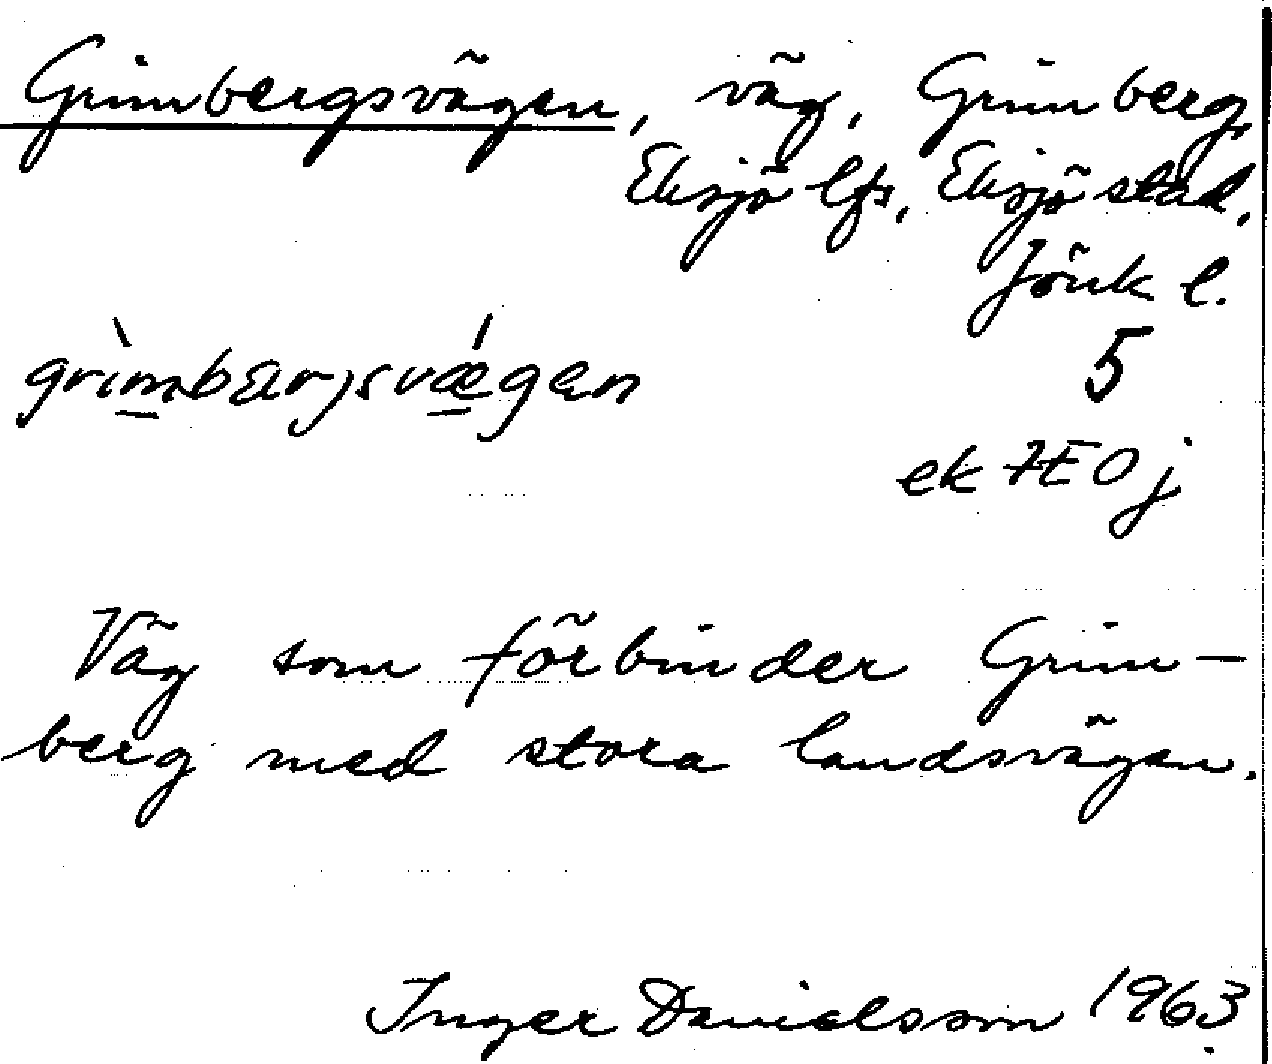 Grimbergsvägen, väg, Grimberg,
Eksjö lfs, Eksjö stad,
Jönk l.
grìmbærjsvǽgen
5
ek 7E0j
Väg som förbinder Grim-
berg med stora landsvägen.
Inger Danielsson 1963